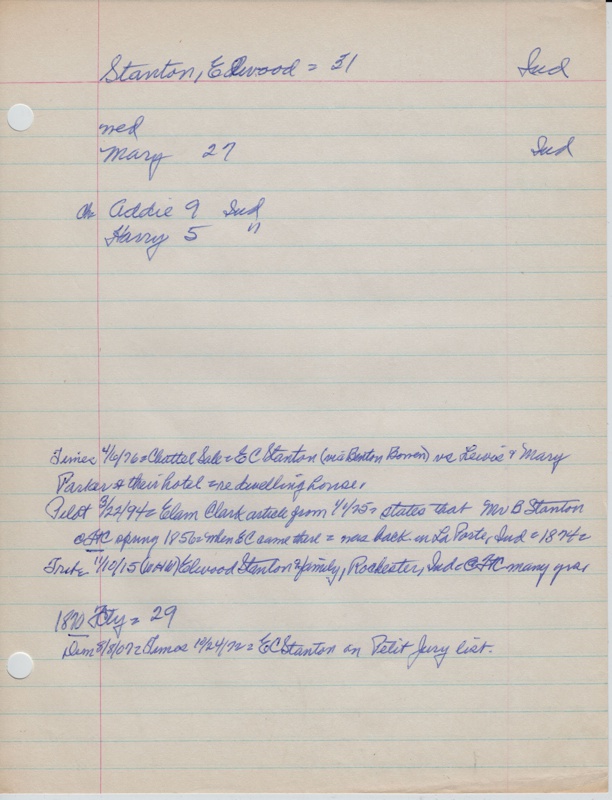 Stanton, Elwood = 31 Ind
med
Mary 27 Ind
ch Addie 9 Ind
Harry 5 "
Times 4/6/76 = Chattel Sale = EC Stanton (via Benton Bowen) vs Lewis & Mary
Parker & their hotel = re dwelling house.
Pilot 3/22/94 = Elam Clark article from 1/1/75 = states that Mr B Stanton
@ FtC spring 1856 = when EC came there = was back in La Porte, Ind = 1874 =
11/10/15 Elwood Stanton & family, Rochester, Ind = @ FtC many yrs.
1870 Fty = 29
Dem 8/8/07 = Times 10/24/72 = EC Stanton on Petit Jury list.